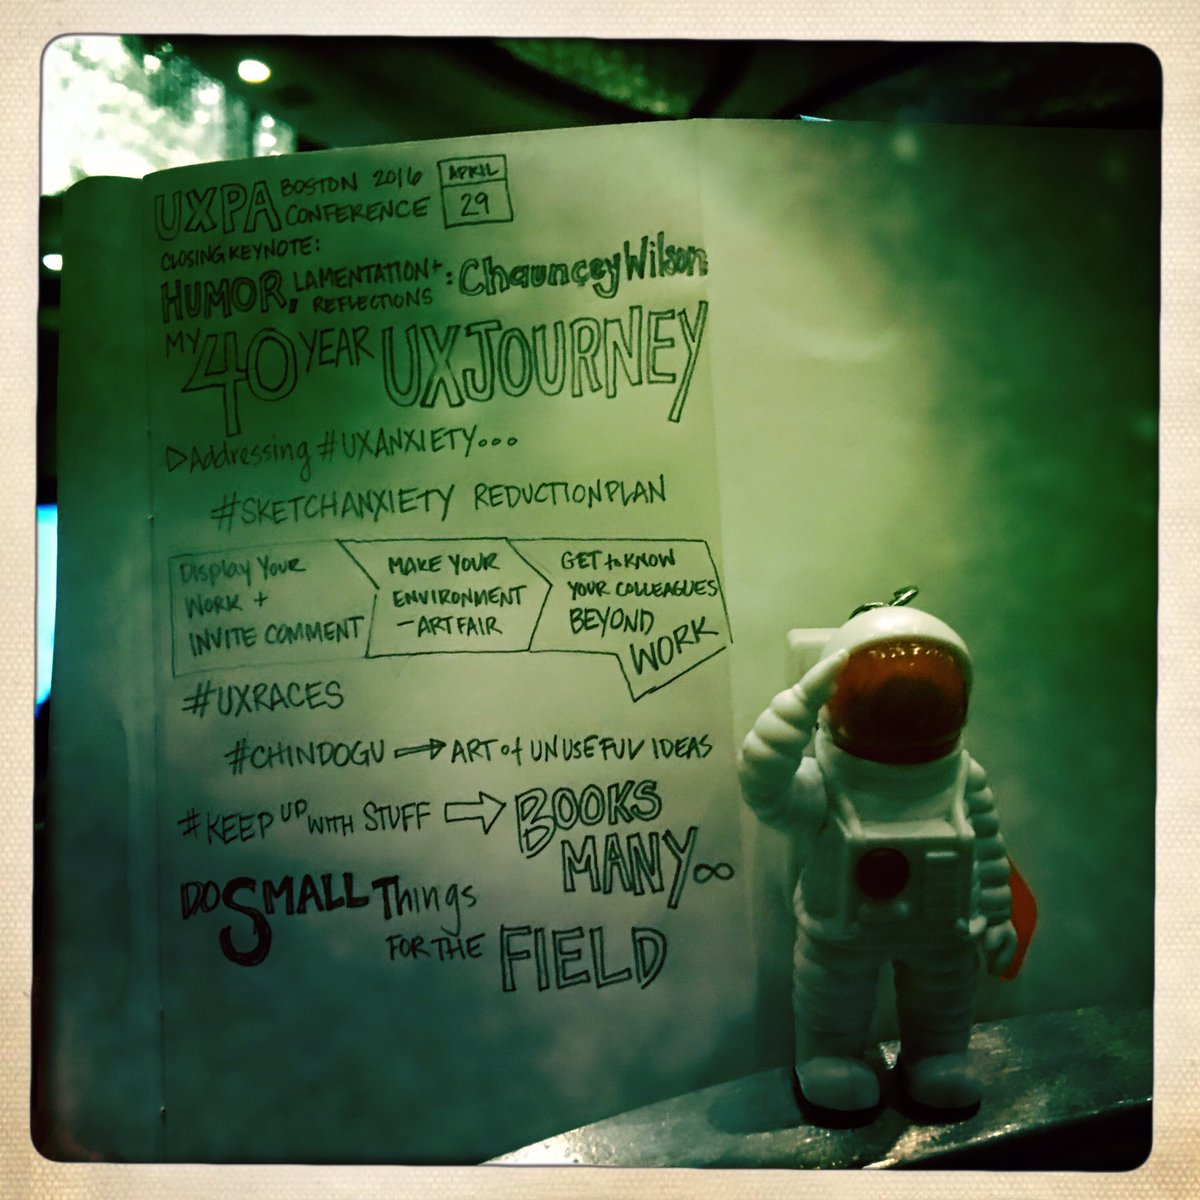 UXPA BOSTON 2016 CONFERENCE APRIL 29
CLOSING KEYNOTE:
HUMOR, LAMENTATION + REFLECTIONS : Chauncey Wilson
MY 40 YEAR UX JOURNEY
▷Addressing #UXANXIETY...
#SKETCHANXIETY REDUCTION PLAN
Display Your
WORK +
INVITE COMMENT
MAKE YOUR
ENVIRONMENT
- ART FAIR
GET to KNOW
YOUR COLLEAGUES
BEYOND
WORK
#UXRACES
#CHINDOGU → ART of UNUSEFUL IDEAS
#KEEP UP WITH STUFF ⇒ BOOKS
MANY ∞
DO SMALL Things
FOR THE FIELD